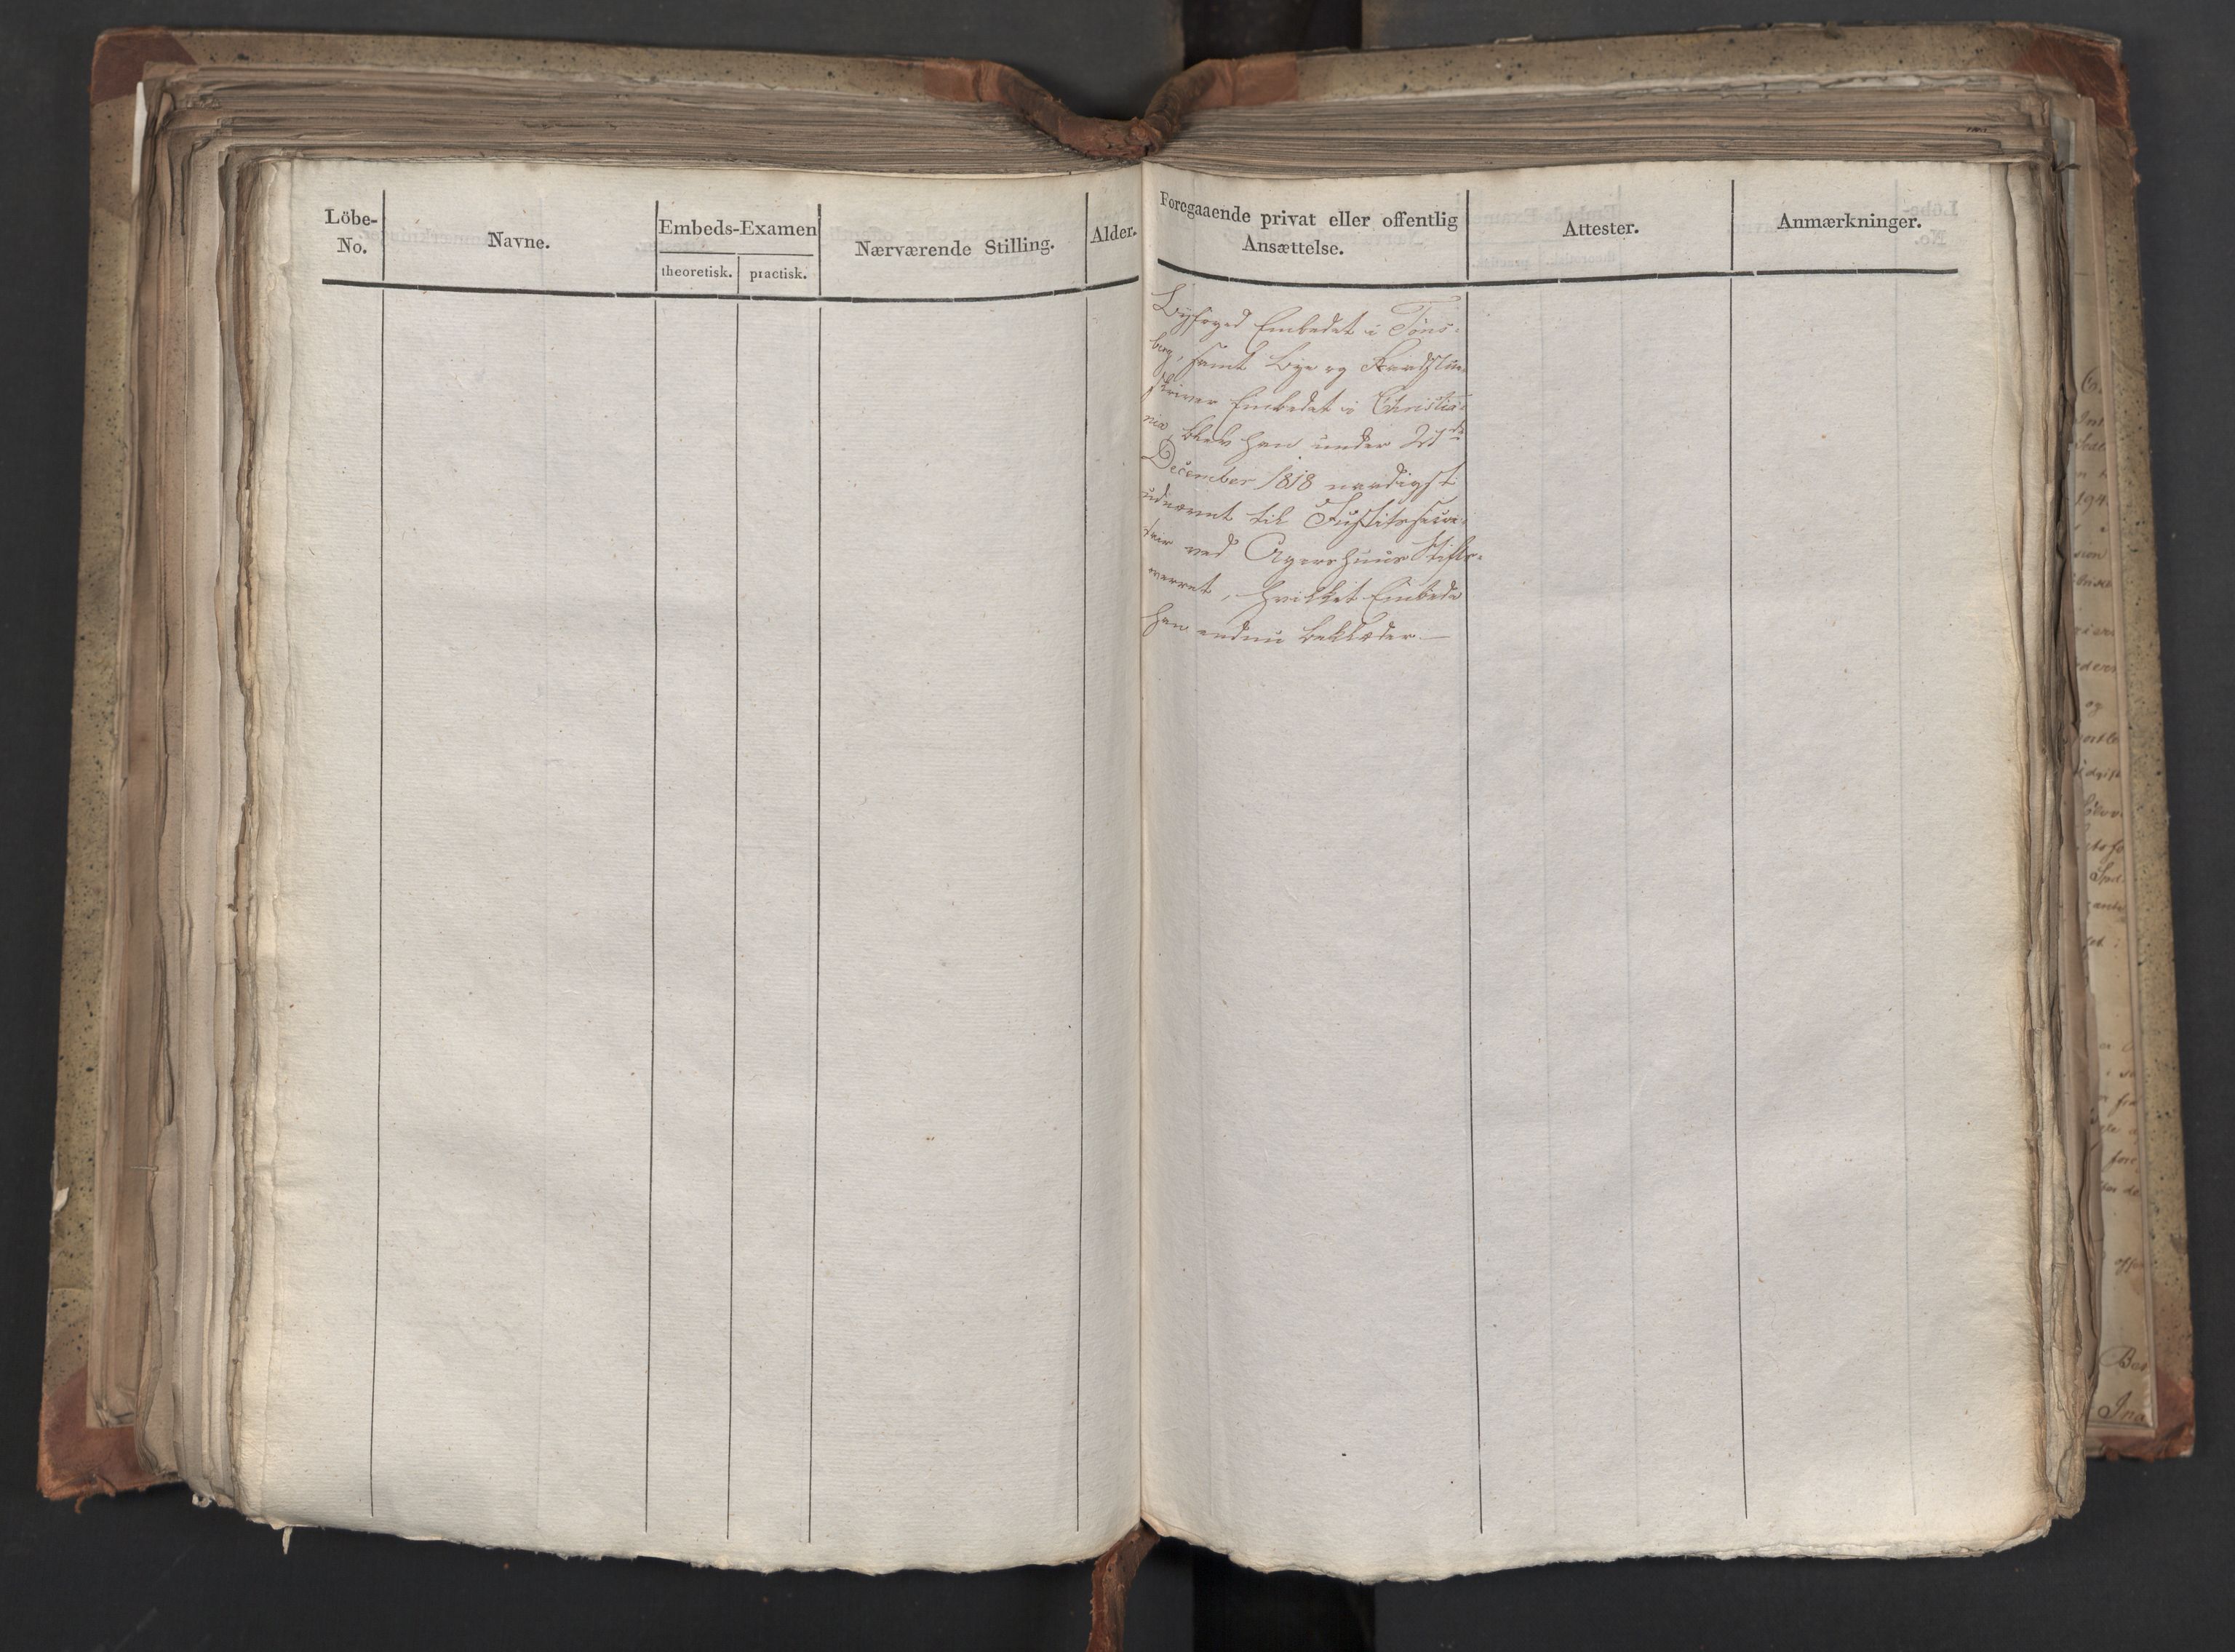 Löbe-
No.
Navne.
Embeds-Examen
theoretisk.
practisk.
Nærværende Stilling.
Alder.
Foregaaende privat eller offentlig
Ansættelse.
Attester.
Anmærkninger.
Byfoged Embedet i Töns-
berg, samt Bye og Raadstue-
skriver Embedet i Christia-
nia, blev han under 21de
December 1818 naadigst
udnævnt til Justitssecre-
tair ved Agershuus Stifts-
overret, hvilket Embede
han endnu beklæder —